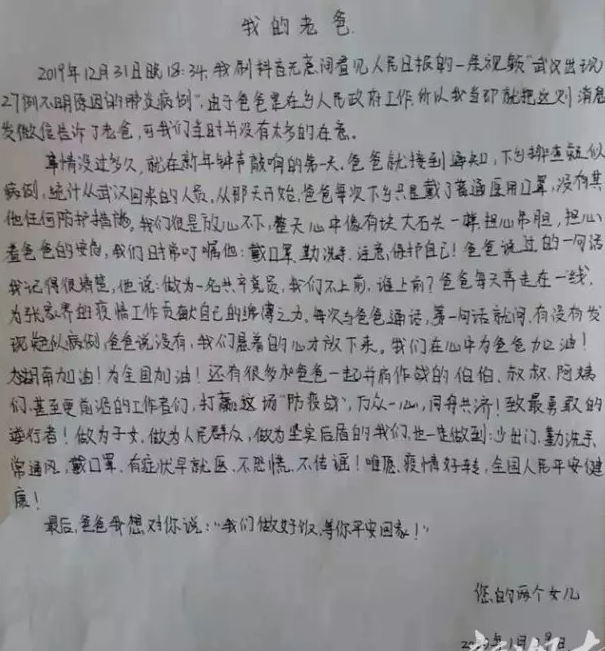 我的老爸
2019年12月31日晚18:34,我刷抖音无意间看见人民日报的一条视频"武汉出现
27例不明原因的肺炎病例".由于爸爸是在乡人民政府工作,所以我当即就把这则消息
发微信告诉了老爸,可我们当时并没有太多的在意.
事情没过多久,就在新年钟声敲响的第一天.爸爸就接到通知,下乡排查疑似
病例,统计从武汉回来的人员,从那天开始,爸爸每次下乡只是戴了普通医用口罩,没有其
他任何防护措施.我们很是放心不下,整天心中像有块大石头一样,担心吊胆,担心
着爸爸的安危,我们时常叮嘱他:戴口罩,勤洗手,注意保护自己!爸爸说过的一句话
我记得很清楚,他说:做为一名共产党员,我们不上前,谁上前?爸爸每天奔走在一线,
为张家界的疫情工作贡献自己的绵薄之力.每次与爸爸通话,第一句话就问,有没有发
现疑似病例,爸爸说没有,我们悬着的心才放下来。我们在心中为爸爸加油!
为湖南加油!为全国加油!还有很多和爸爸一起并肩作战的伯伯、叔叔、阿姨
们,甚至更前沿的工作者们,打赢这场"防疫战",万众一心,同舟共济!致最勇敢的
逆行者!做为子女,做为人民群众,做为坚实后盾的我们,也一定做到:少出门,勤洗手,
常通风,戴口罩,有症状早就医,不恐慌,不传谣!唯愿,疫情好转,全国人民平安健
康!
最后,爸爸我想对你说:"我们做好饭,等你平安回家!"
您的两个女儿